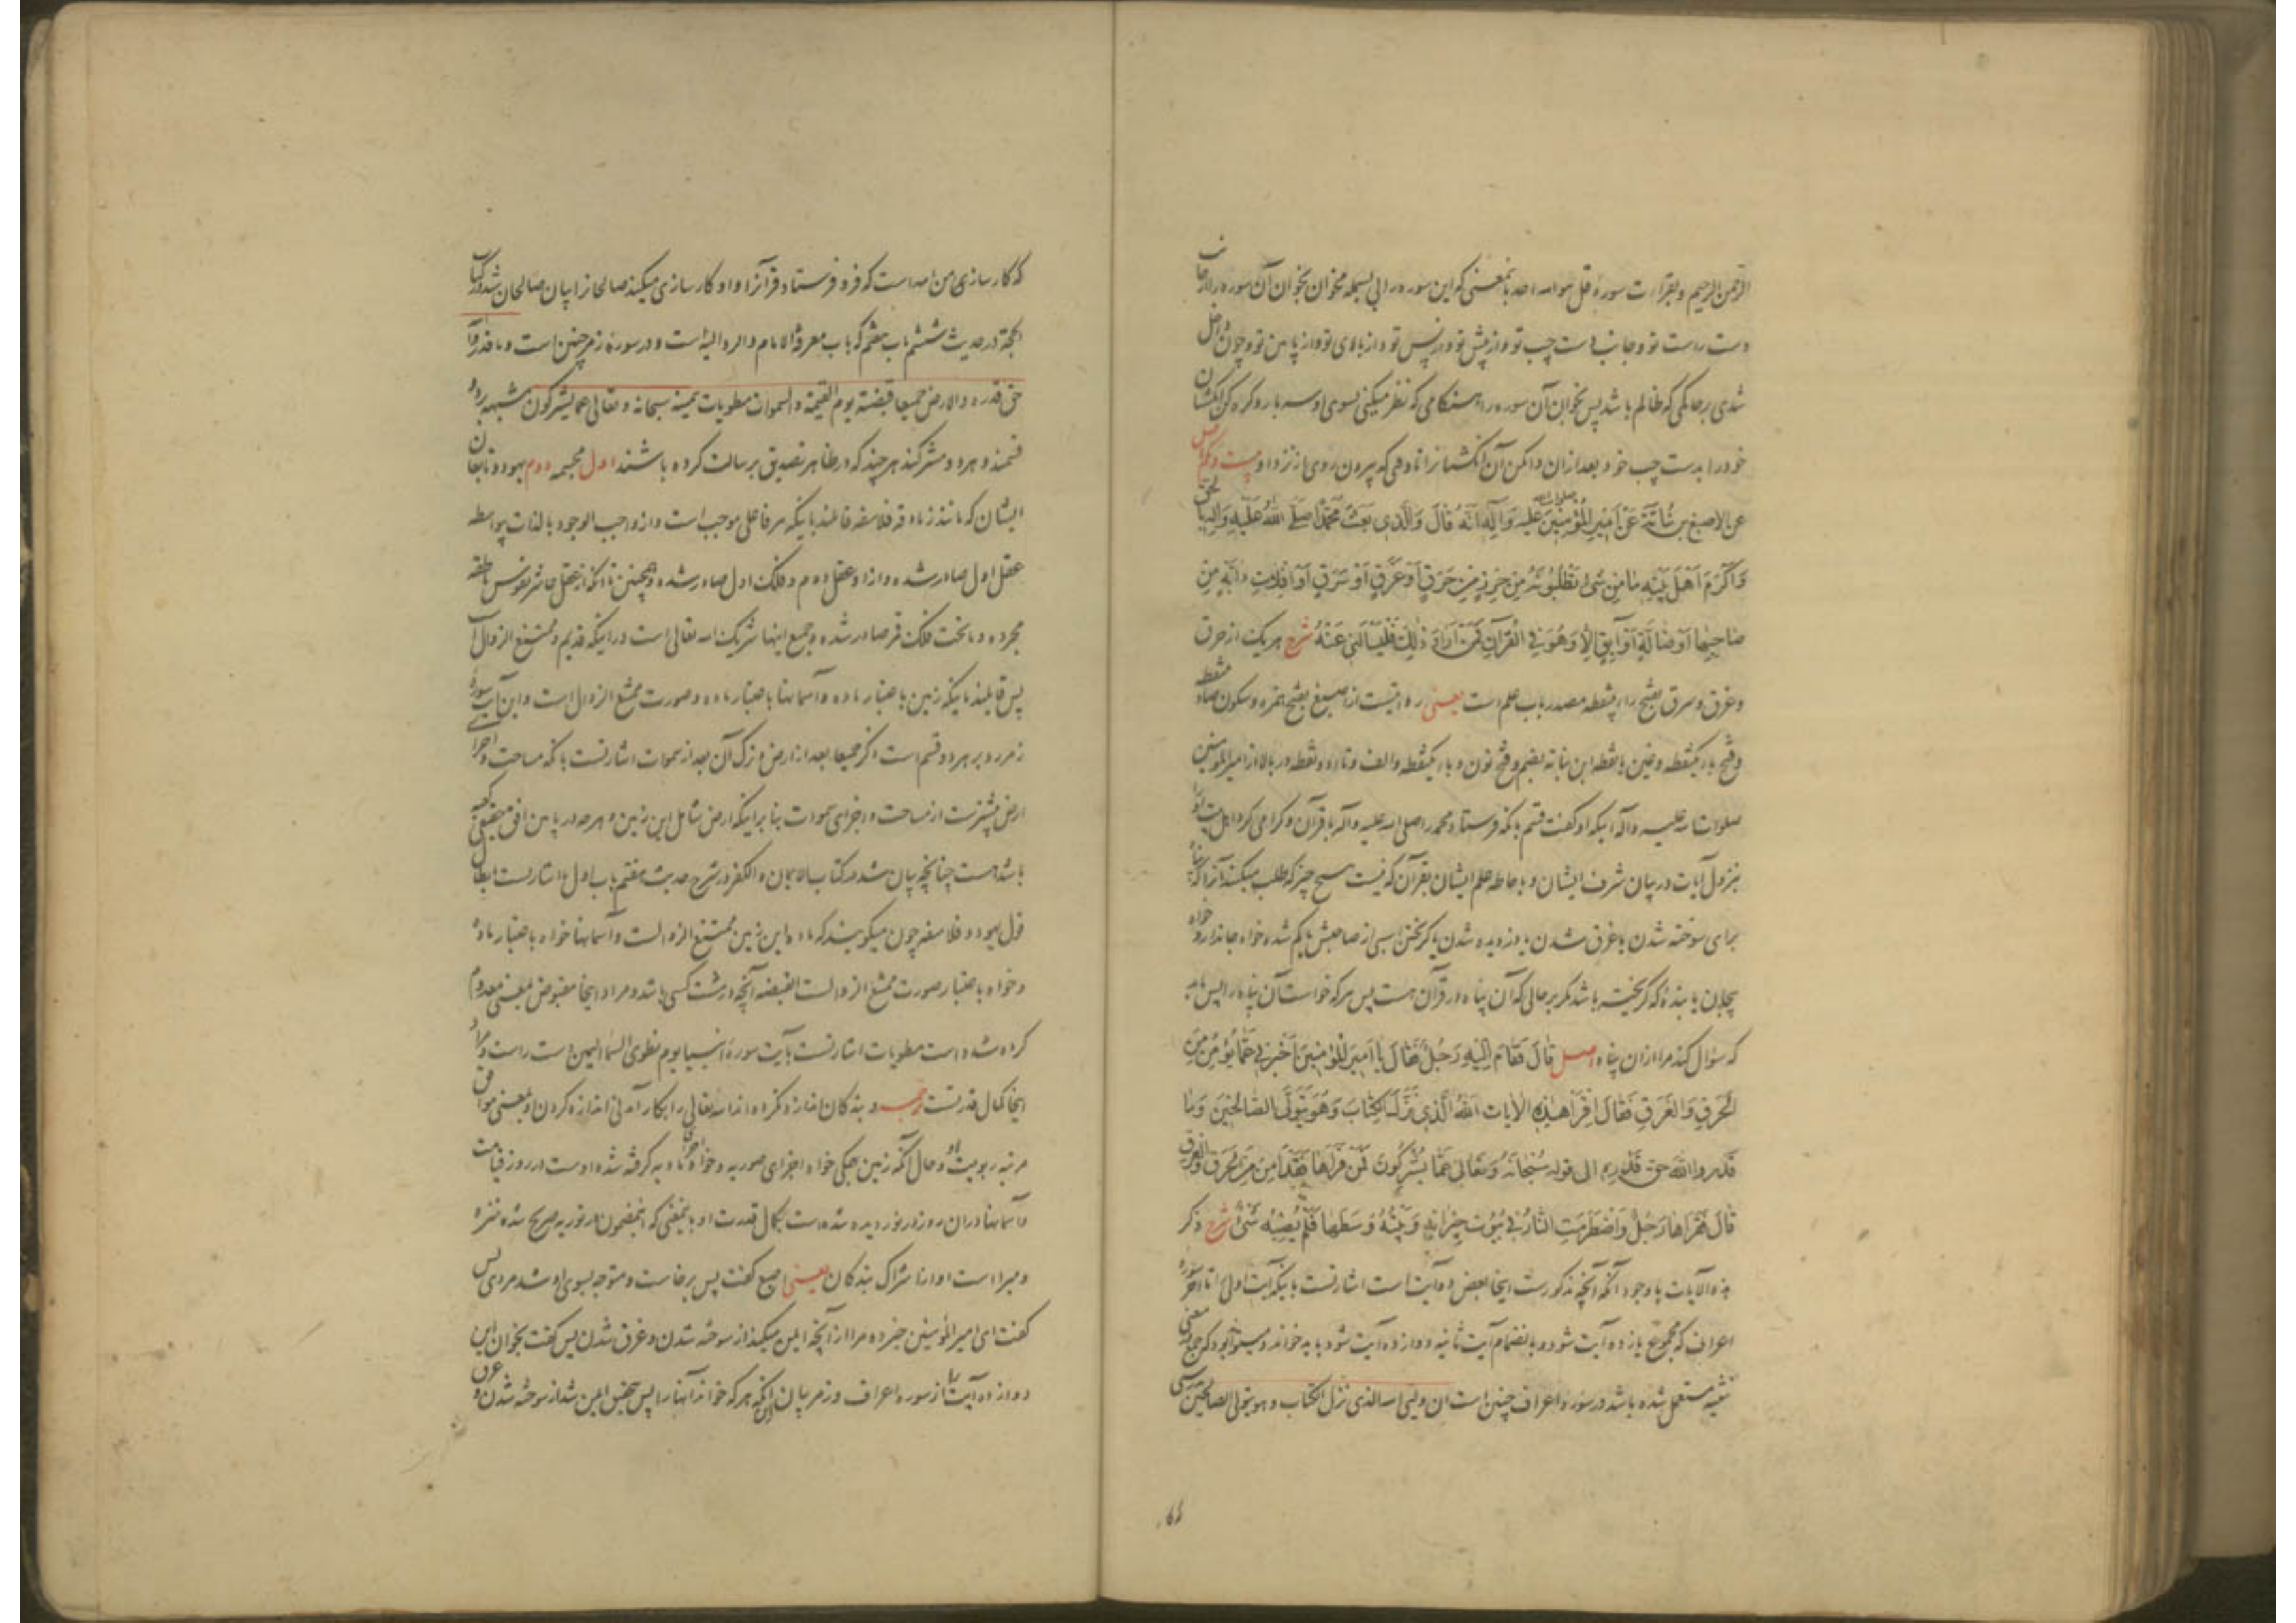 الرحمن الرحیم و بقراءت سورهٔ قل هو الله احد بمعنی که این سوره را بی بسمله مخوان بخوان آن سوره را از جانب
دست راست تو و جانب دست چپ تو و از پیش تو و از پس تو و از بالای تو و از پایین تو و چون داخل
شدی بر حاکمی که ظالم باشد پس بخوان آن سوره را هنگامی که نظر میکنی بسوی او سه بار و گره کن انگشتان
خود را بدست چپ خود بعد از ان وا مکن آن انگشتانرا تا وقتی که بیرون روی از نزد او بیست و یکم اصل
عن الاصبغ بن نباتة عن امیر المؤمنین صلوات الله علیه وآله انه قال والذی بعث محمدا صلی الله علیه وآله بالحق
واکرم اهل بیته ما من شیء تطلبونه من حرز من حرق او غرق او سرق او افلات دابة من
صاحبها او ضالة او آبق الا وهو فی القرآن فمن اراد ذلک فلیسألنی عنه شرح هر یک از حرق
و غرق و سرق بفتح راء بینقطه مصدر باب علم است یعنی روایتست از اصبغ بفتح همزه و سکون صاد بینقطه
و فتح باء یکنقطه و غین با نقطه ابن نباته بضم و فتح نون و باء یکنقطه و الف و تاء دو نقطه در بالا از امیر المؤمنین
صلوات الله علیه وآله اینکه او گفت قسم بآنکه فرستاد محمد را صلی الله علیه وآله با قرآن و گرامی کرد اهل بیت او را
بنزول آیات در بیان شرف ایشان و باحاطه علم ایشان بقرآن که نیست هیچ چیز که طلب میکنید آنرا که پناه
برای سوخته شدن یا غرق شدن یا دزدیده شدن یا گریختن اسبی از صاحبش یا گم شده خواه جاندار و خواه
بیجان یا بندهٔ که گریخته باشد مگر بر حالی که آن پناه در قرآن هست پس هر که خواست آن پناه را پس باید
که سؤال کند مرا از ان پناه اصل قال فقام الیه رجل فقال یا امیر المؤمنین اخبرنی عما یؤمن من
الحرق والغرق فقال اقرأ هذه الآیات الله الذی نزل الکتاب وهو یتولی الصالحین وما
قدروا الله حق قدره الی قوله سبحانه وتعالی عما یشرکون فمن قرأها فقد امن من الحرق والغرق
قال فقرأها رجل واضطرمت النار فی بیوت جیرانه وبیته وسطها فلم یصبه شیء شرح ذکر
هذه الآیات با وجود آنکه آنچه مذکورست اینجا بعض دو آیت است اشارتست باینکه آیت اولی تا آخر سورهٔ
اعراف که مجموع یازده آیت شود و بانضمام آیت ثانیه دوازده آیت شود باید خواند و میتواند بود که جمع بمعنی
تثنیه مستعمل شده باشد در سورهٔ اعراف چنین است ان ولیی الله الذی نزل الکتاب وهو یتولی الصالحین بدرستی
که کار
که کار سازی من الله است که فرو فرستاد قرآنرا و او کار سازی میکند صالحانرا بیان صالحان شد در کتاب
الحجة در حدیث ششم باب هفتم که باب معرفة الامام والرد الیه است و در سورهٔ زمر چنین است وما قدروا
حق قدره والارض جمیعا قبضته یوم القیمة والسموات مطویات بیمینه سبحانه وتعالی عما یشرکون مشبهه بر دو
قسمند و هر دو مشرکند هر چند که در ظاهر تصدیق برسالت کرده باشند اول مجسمه دوم یهود و تابعان
ایشان که مانند زنادقه فلاسفه قائلند باینکه هر فاعلی موجب است و از واجب الوجود بالذات بیواسطه
عقل اول صادر شده و از او عقل دوم و فلک اول صادر شده و همچنین تا آنکه از عقل عاشر نفوس ناطقه
مجرده و ما تحت فلک قمر صادر شده و جمیع اینها شریک الله تعالی است در اینکه قدیم و ممتنع الزوال است
پس قایلند باینکه زمین باعتبار ماده و آسمانها باعتبار ماده و صورت ممتنع الزوال است و این آیت سورهٔ
زمر رد بر هر دو قسم است ذکر جمیعا بعد از ارض و ترک آن بعد از سموات اشارتست بآنکه مساحت و اجزای
ارض بیشترست از مساحت و اجزای سموات بنا بر اینکه ارض شامل این زمین و هر چه در پایین افق حقیقی
باشد هست چنانچه بیان شد در کتاب الایمان والکفر در شرح حدیث هفتم باب اول و اشارتست بابطال
قول یهود و فلاسفه چون میگویند که ماده این زمین ممتنع الزوالست و آسمانها خواه باعتبار ماده
و خواه باعتبار صورت ممتنع الزوالست القبضه آنچه در مشت کسی باشد و مراد اینجا مقبوض بمعنی معدوم
کرده شده است مطویات اشارتست بآیت سورهٔ انبیا یوم نطوی السماء الیمین دست راست و مراد
اینجا کمال قدرتست ترجمه و بندگان اندازه نکرده اند الله تعالی را بکار آمدنی اندازه کردن او بمعنی موافق
مرتبه ربوبیت او و حال آنکه زمین همگی خواه اجزای صوریه و خواه اجزای مادیه گرفته شده اوست در روز قیامت
و آسمانها در ان روز در نوردیده شده است بکمال قدرت او بمعنی که این مضمون در نوریه صریح شده منزه
و مبراست او از اشراک بندگان یعنی اصبغ گفت پس برخاست و متوجه بسوی او شد مردی پس
گفت ای امیر المؤمنین خبر ده مرا از آنچه ایمن میکند از سوخته شدن و غرق شدن پس گفت بخوان این
دوازده آیت را از سوره اعراف و زمر بیان این آنکه هر که خواند آنها را پس بتحقیق ایمن شد از سوخته شدن و غرق